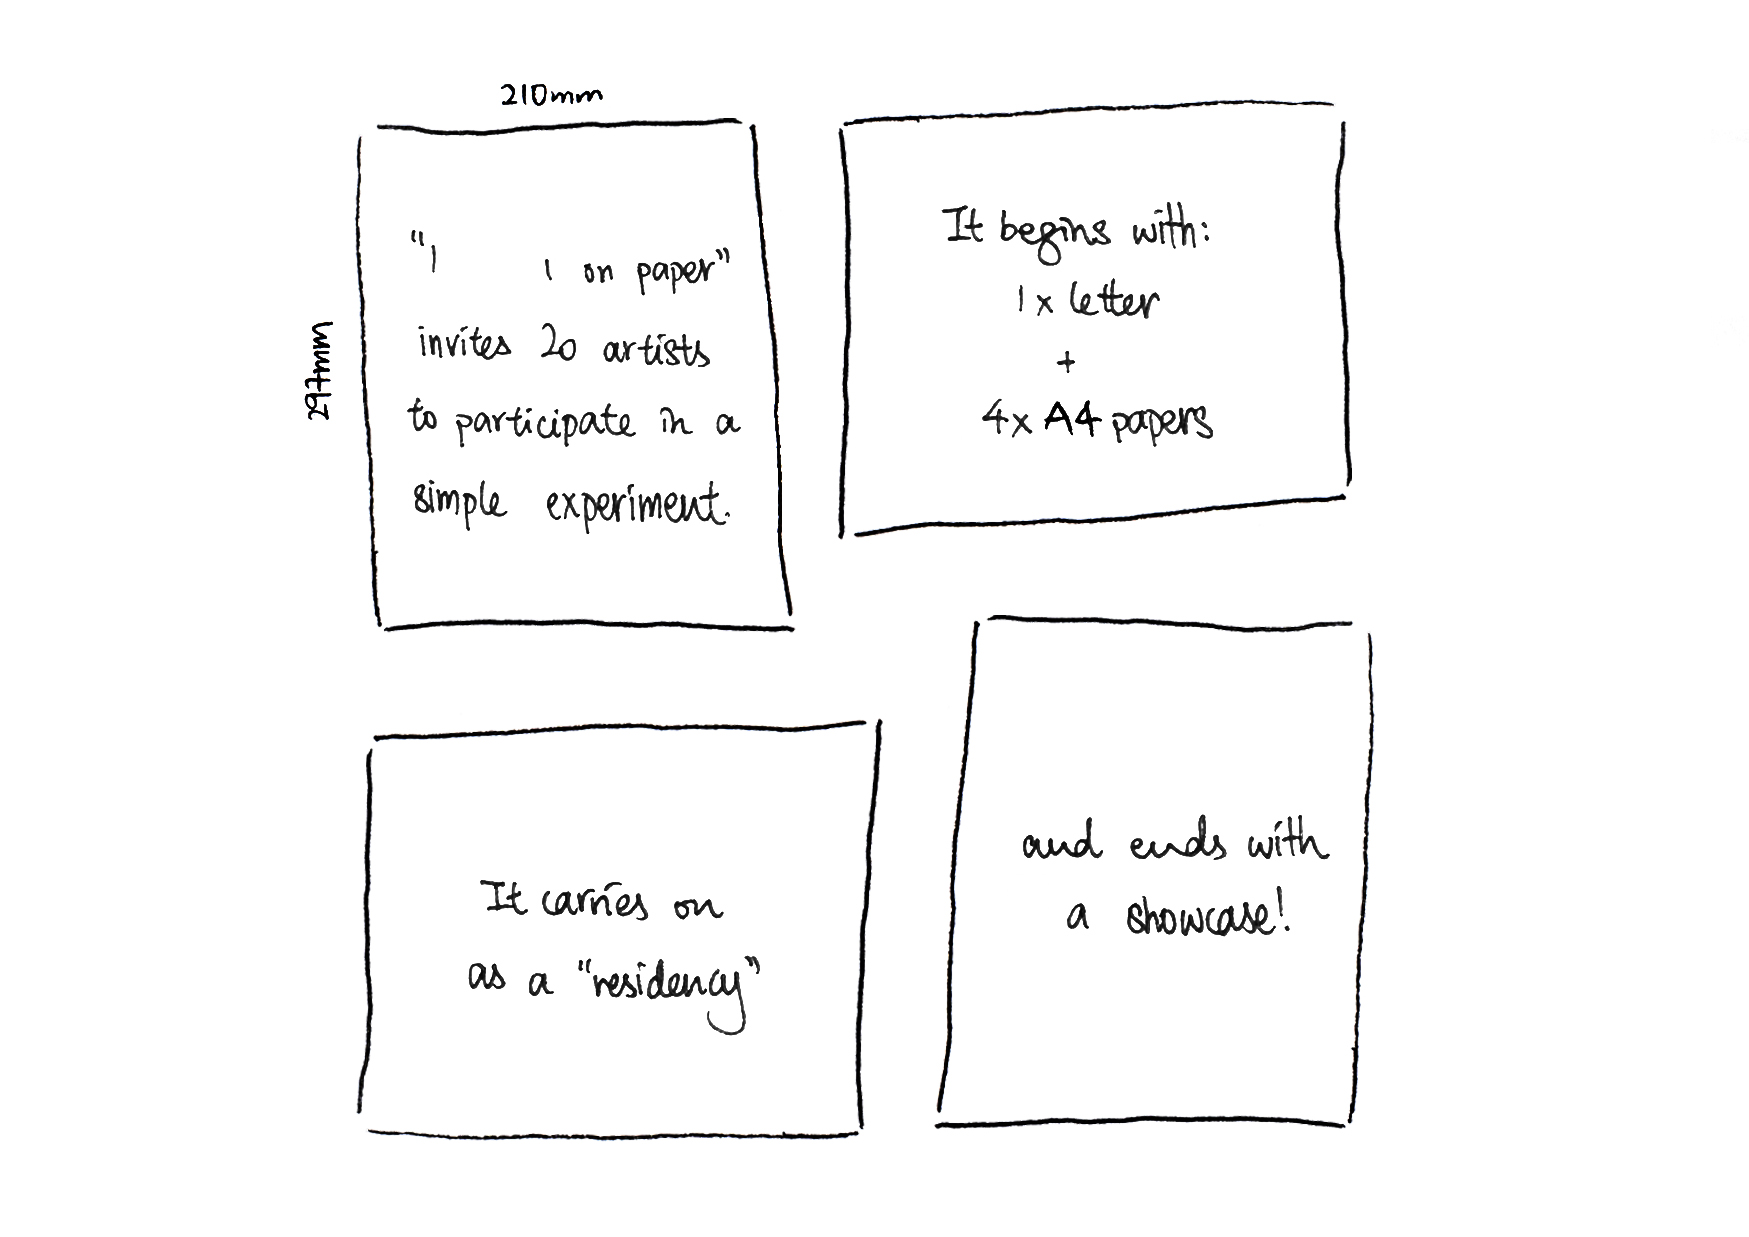 210mm
297mm
“ı ı on paper”
invites 20 artists
to participate in a
simple experiment.
It begins with:
1 x letter
+
4x A4 papers
It carries on
as a “residency”
and ends with
a showcase!